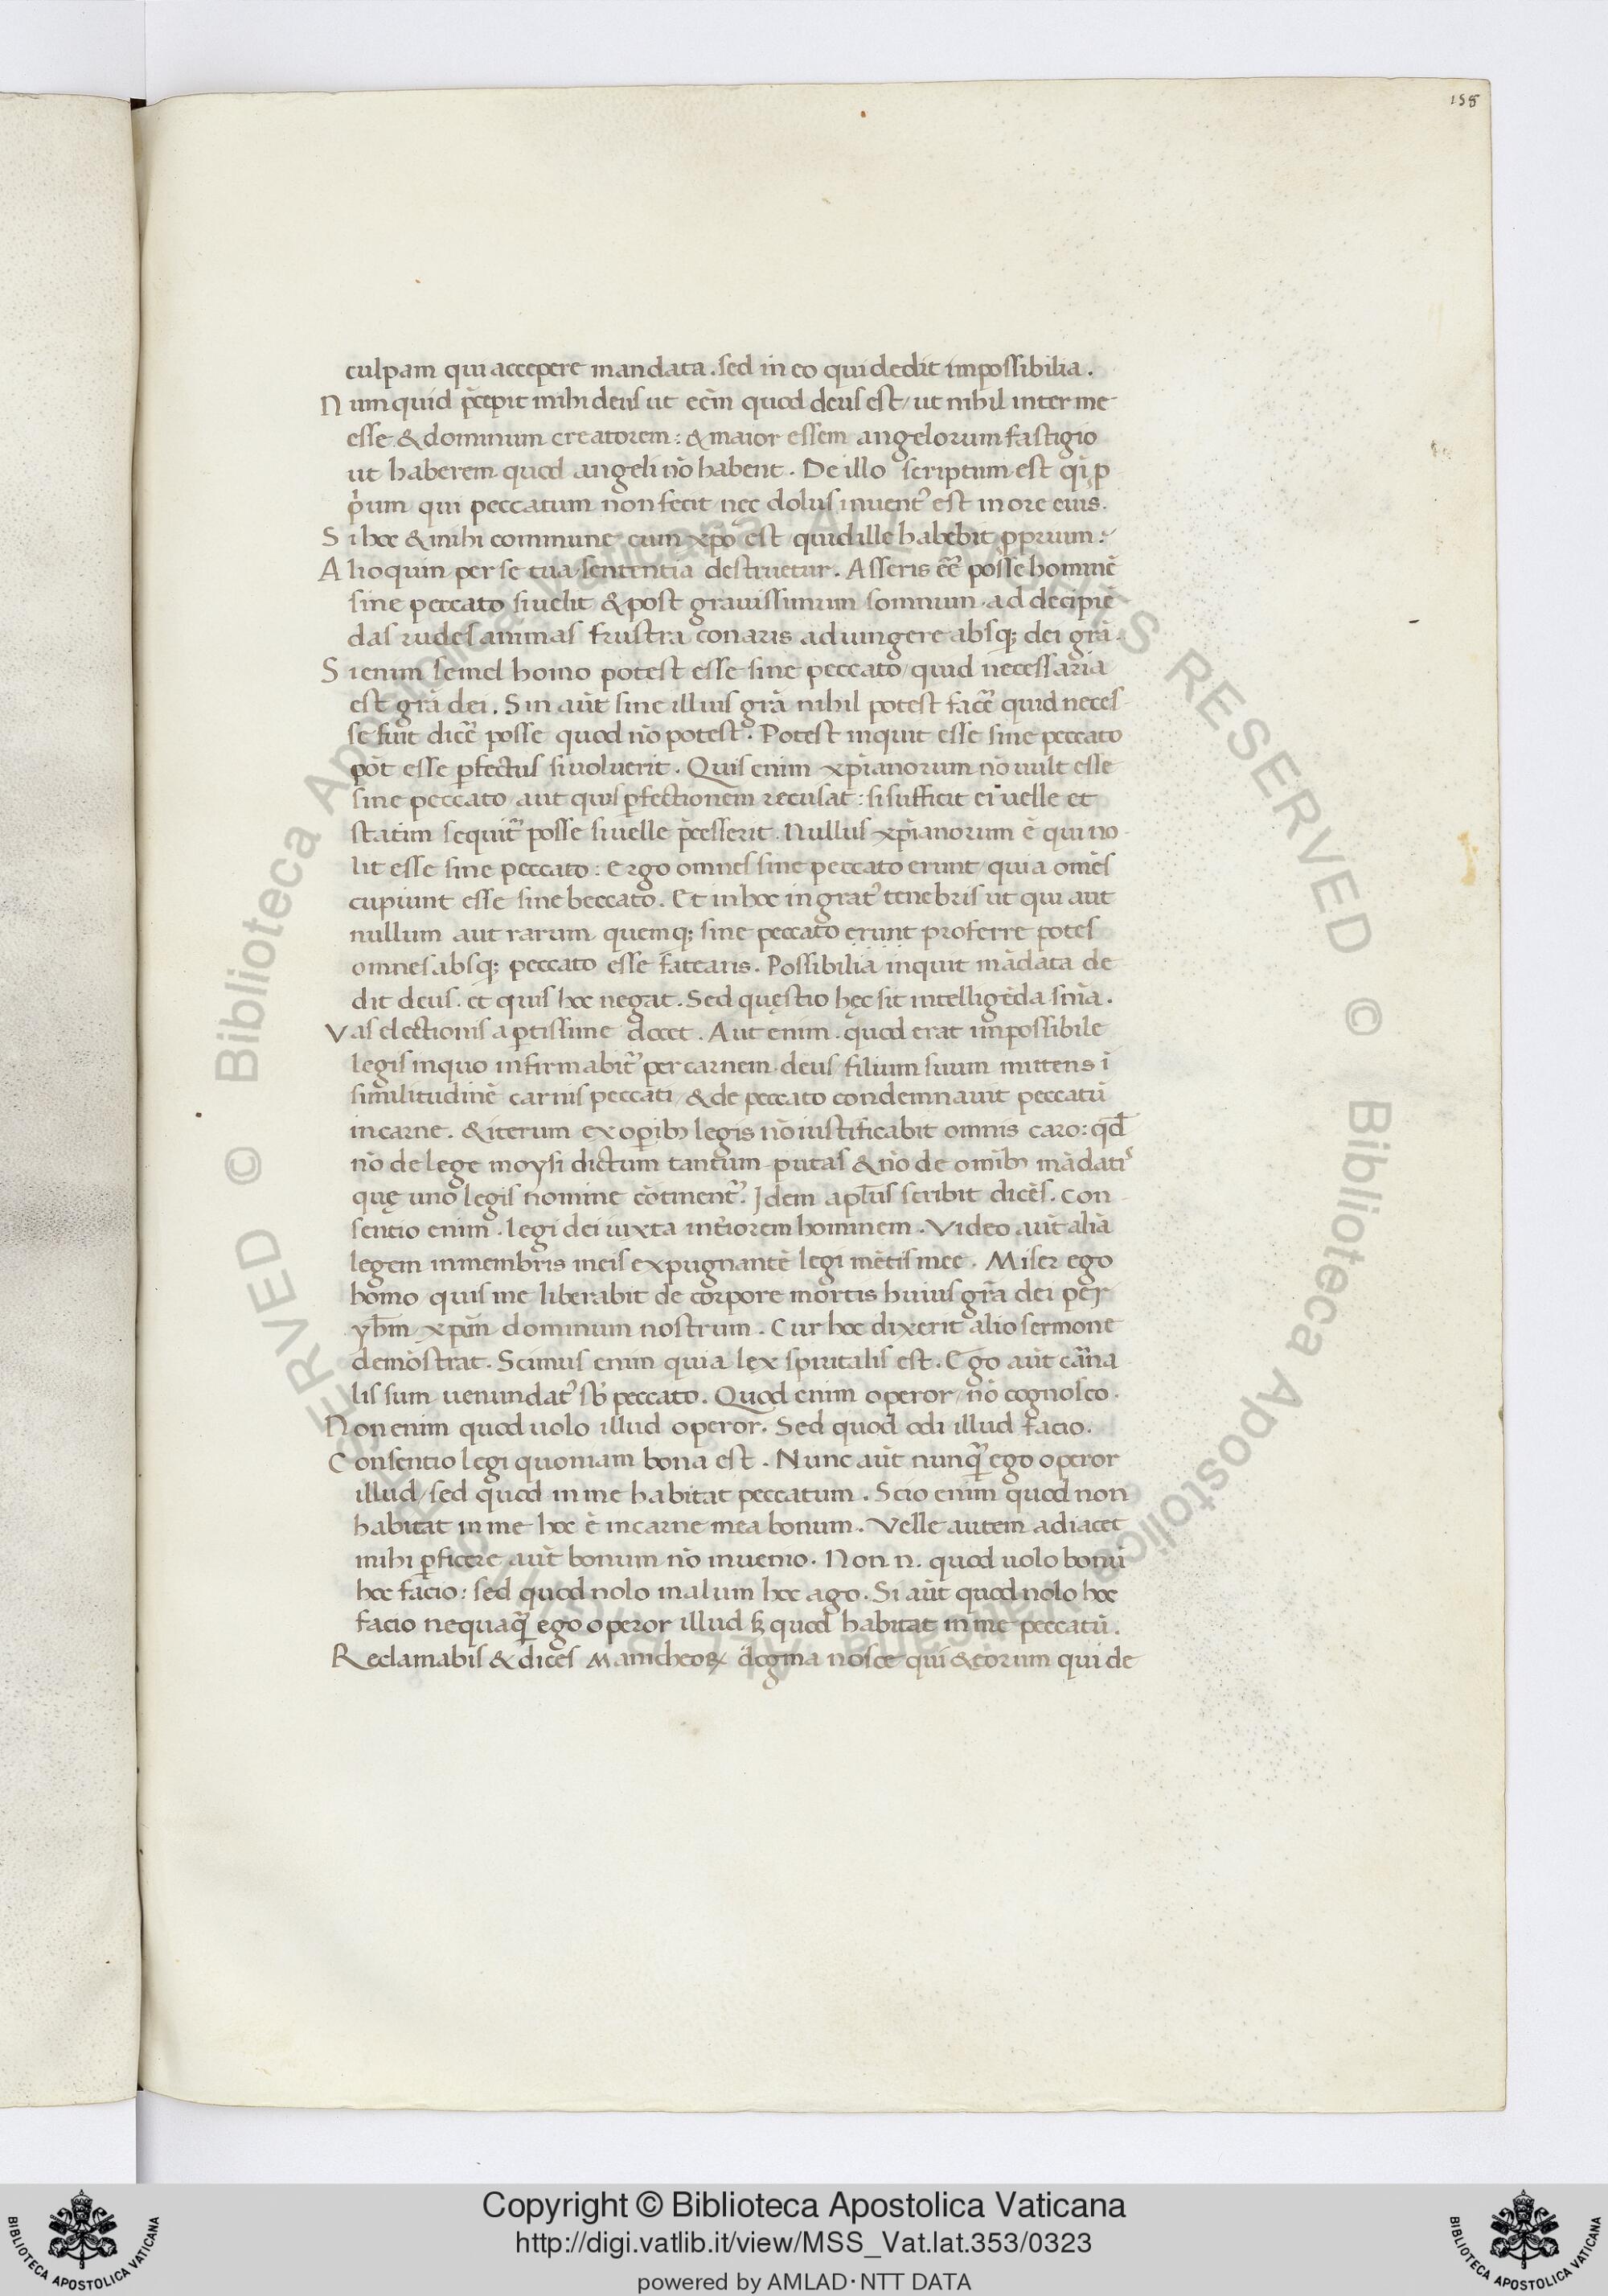 158
culpam qui accepere mandata. sed in eo qui dedit impossibilia.
Num quid p̄cepit mihi deus ut eēm quod deus est/ ut nihil inter me
esse & dominum creatorem: & maior essem angelorum fastigio
ut haberem quod angeli nō habent. De illo scriptum est q̄i ꝓ
p̓um qui peccatum non fecit nec dolus inuent᾽ est in ore eius.
Si hoc & mihi commune cum xp̄o est quid ille habebit ꝓprium:
Alioquin per se tua sententia destruetur. Asseris eē̄ posse hominē
sine peccato si uelit & post grauissimum somnum ad decipiē
das rudes animas frustra conaris adiungere absq; dei grā.
Si enim semel homo potest esse sine peccato/ quid necessaria
est grā dei. Sin aūt sine illius grā nihil potest facē̄ quid neces
se fuit dicē̄ posse quod nō potest. Potest inquit esse sine peccato
pōt esse ꝑfectus si uoluerit. Quis enim xp̄ianorum nō uult esse
sine peccato aut quis ꝑfectionem recusat: si sufficit ei uelle et
statim sequit᷑ posse si uelle p̄cesserit. Nullus xp̄ianorum ē qui no
lit esse sine peccato: Ergo omnes sine peccato erunt/ quia omēs
cupiunt esse sine beccato. Et in hoc ingrat᾽ tenebris ut qui aut
nullum aut rarum quemq; sine peccato erunt proferre potes
omnes absq; peccato esse fatearis. Possibilia inquit mādata de
dit deus. et quis hoc negat. Sed quęstio hęc sit intelligēda sn̄ia.
Vas electionis aꝑtissime docet. Aut enim. quod erat impossibile
legis in quo infirmabit᷑ per carnem. deus filium suum mittens ī
similitudinē carnis peccati/ & de peccato condemnauit peccatū
in carne. & iterum ex oꝑib; legis nō iustificabit omnis caro: qd̄
nō de lege moysi dictum tantum putas & nō de om̄ib; mādati᾽
quę uno legis nomine cōtinent᷑. Idem apl̄us scribit dicēs. Con
sentio enim. legi dei iuxta int̄iorem hominem. Video aūt aliā
legem in membris meis expugnantē legi mētis mee. Miser ego
homo quis me liberabit de corpore mortis huius grā dei per
yh̄m xp̄m dominum nostrum. Cur hoc dixerit alio sermone
demōstrat. Scimus enim quia lex spiritalis est. Ego aūt cārna
lis sum uenundat᾽ sb̄ peccato. Quod enim operor/ nō cognosco.
Non enim quod uolo illud operor. Sed quod odi illud facio.
Consentio legi quoniam bona est. Nunc aūt nunq̄ ego operor
illud/ sed quod in me habitat peccatum. Scio enim quod non
habitat in me hoc ē in carne mea bonum. Velle autem adiacet
mihi ꝑficere aūt bonum nō inuenio. Non .n. quod uolo bonū
hoc facio: sed quod nolo malum hoc ago. Si aūt quod nolo hoc
facio nequaq̄ ego operor illud sꝫ quod habitat in me peccatū.
Reclamabis & dices Manicheoꝝ dogma nosce qui & eorum qui de
Copyright © Biblioteca Apostolica Vaticana
http://digi.vatlib.it/view/MSS_Vat.lat.353/0323
powered by AMLAD·NTT DATA
BIBLIOTECA APOSTOLICA VATICANA
BIBLIOTECA APOSTOLICA VATICANA